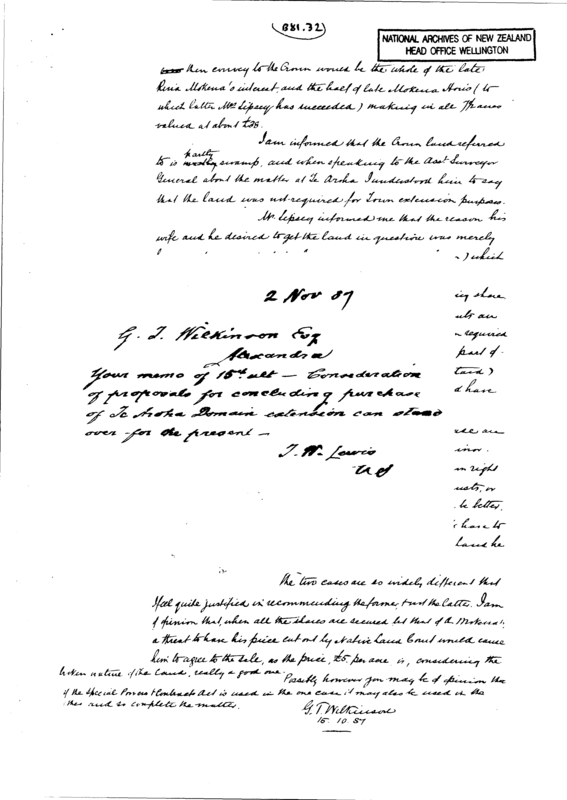 (881.32)
NATIONAL ARCHIVES OF NEW ZEALAND
HEAD OFFICE WELLINGTON
then convey to the Crown would be the whole of the late
Rina Mokena's interest, and the half of late Mokena Hou's (to
which latter Mrs Lipsey has succeeded) making in all 7½ acres
valued at about £38.
I am informed that the Crown land referred
to is partly swamp, and when speaking to the Asst Surveyor
General about the matter at Te Aroha I understood him to say
that the land was not required for Town extension purposes.
Mr Lipsey informed me that the reason his
wife and he desired to get the land in question was merely
) which
2 Nov 87
G. T. Wilkinson Esq
Alexandra
Your memo of 15th ult – Consideration
of proposals for concluding purchase
of Te Aroha Domain extension can stand
over for the present –
T. W. Lewis
U S
ing share
required
part of
have
are
in right
or
be better,
to
he
The two cases are so widely different that
I feel quite justified in recommending the former & not the latter. I am
of opinion that, when all the shares are secured but that of R. Mokena's
a threat to have his piece cut out by Native Land Court would cause
him to agree to the sale, as the price, £5 per acre is, considering the
broken nature of the land, really a good one. Possibly however you may be of opinion that
if the Special Powers & Contracts Act is used in the one case it may also be used in the
other and so complete the matter.
G. T. Wilkinson
15. 10. 87